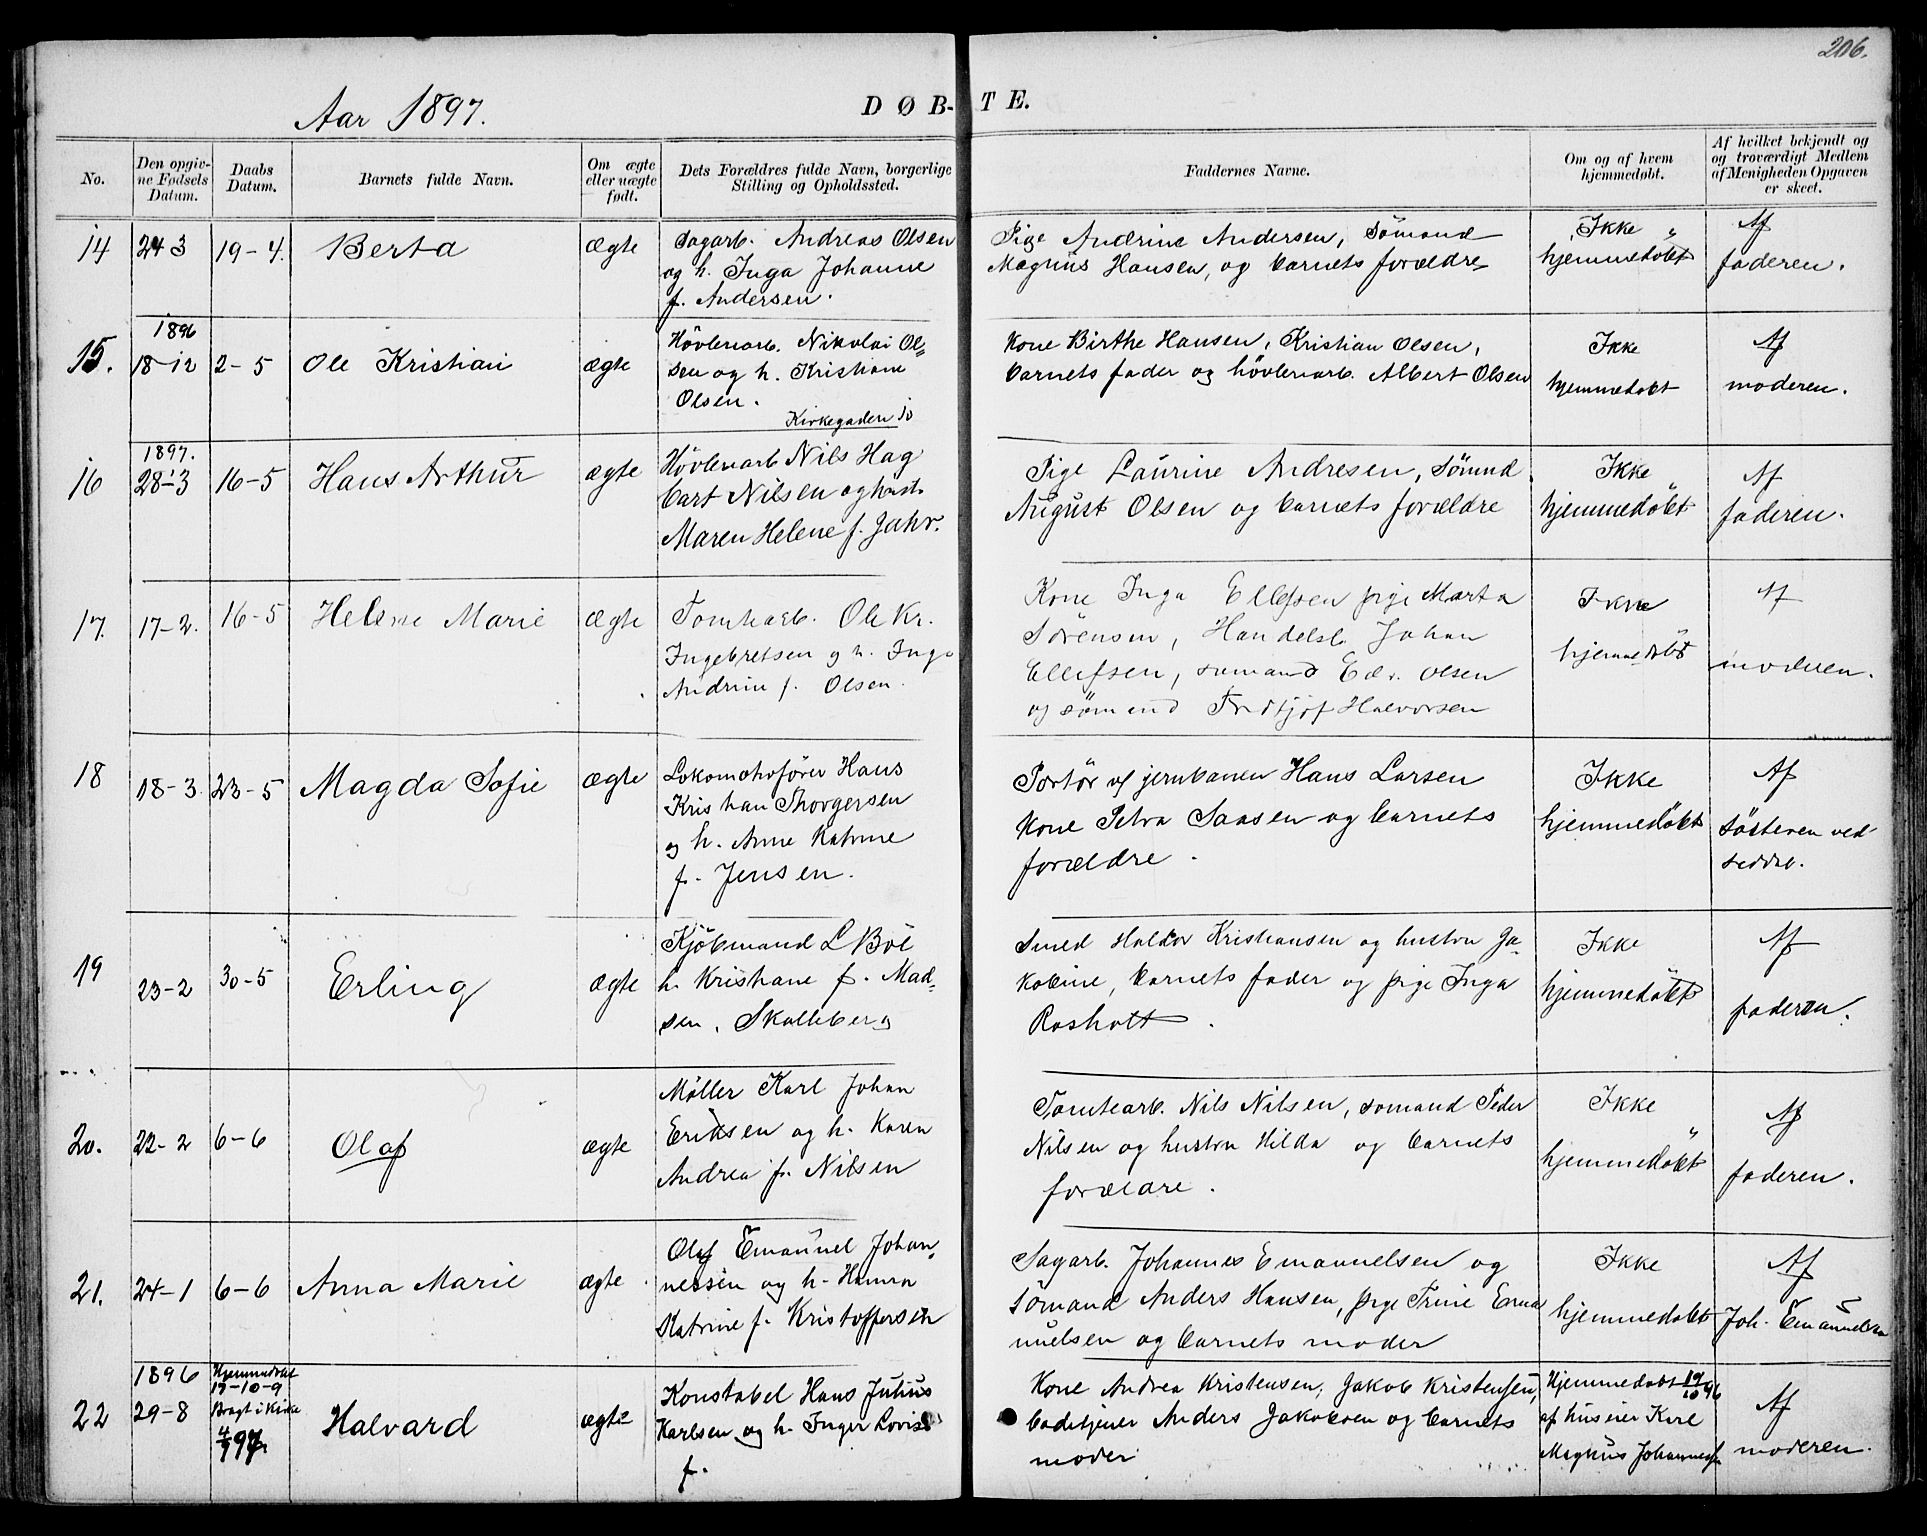 206.
Aar 1897.
DØB-TE.
No.
Den opgiv-
ne Fødsels
Datum.
Daabs
Datum.
Barnets fulde Navn.
Om ægte
eller uægte
født.
Dets Forældres fulde Navn, borgerlige
Stilling og Opholdssted.
Faddernes Navne.
Om og af hvem
hjemmedøbt.
Af hvilket bekjendt og
og troværdigt Medlem
af Menigheden Opgaven
er skeet.
14
24 3
19-4.
Berta
Ægte
Sagarb. Andreas Olsen
og h. Inga Johanne
f. Andersen.
Pige Andrine Andersen, Sømand
Magnus Hansen, og barnets forældre
Ikke
hjemmedøbt
Af
faderen.
15.
1896
18-12
2-5
Ole Kristian
ægte
Høvleriarb. Nikolai Ol-
sen og h. Kristiane
Olsen.
Kirkegaden 10
Kone Birthe Hansen, Kristian Olsen,
barnets fader og høvleriarb. Albert Olsen
Ikke
hjemmedøbt
Af
moderen.
16
1897.
28-3
16-5
Hans Arthur
ægte
Høvleriarb Nils Hag
bart Nilsen og hust.
Maren Helene f. Jahr.
Pige Laurine Andresen, Sømnd
August Olsen og barnets forældre
Ikke
hjemmedøbt
Af
faderen.
17.
17-2.
16-5
Helene Marie
Ægte
Tomtearb. Ole Kr.
Ingebretsen og h. Inga
Andrine f. Olsen.
Kone Inga Ellefsen pige Marta
Sørensen, Handelsb. Johan
Ellefsen, sømand Edv. Olsen
og sømand Fridtjof Halvorsen
Ikke
hjemmedøbt
Af
moderen.
18
18-3.
23-5
Magda Sofie
Ægte
Lokomotivfører Hans
Kristian Thorgersen
og h. Anne Katrine
f. Jensen.
Portør v/ jernbanen Hans Larsen
Kone Petra Saasen og barnets
forældre.
Ikke
hjemmedøbt
Af
Søsteren ved
seddel.
19
23-2
30-5
Erling
ægte
Kjøbmand L Bøe
h. Kristiane f. Mad-
sen. Skalleberg
Smed Haldor Kristiansen og hustru Ja-
kobine, barnets fader og pige Inga
Rosholt.
Ikke
hjemmedøbt
Af
faderen.
20.
22-2
6-6
Olaf
ægte
Møller Karl Johan
Eriksen og h. Karen
Andrea f. Nilsen
Tomtearb. Nils Nilsen, sømand Peder
Nilsen og hustru Hilda og barnets
forældre.
Ikke
hjemmedøbt
Af
faderen.
21.
24-1
6-6
Anna Marie
ægte.
Olaf Emanuel Johan-
nessen og h. Hanna
Katrine f. Kristoffersen
Sagarb. Johannes Emanuelsen og
Sømand Anders Hansen, pige Trine Ema
nuelsen og barnets moder
Ikke
hjemmedøbt
Af
Joh. Emanuelsen
22
1896
29-8
Hjemmedøbt
19-10-9
Bragt i Kirke
4/7 97
Halvard
ægte
Konstabel Hans Julius
Karlsen og h. Inger Lovise
f.
Kone Andrea Kristensen, Jakob Kristensen,
badetjener Anders Jakobsen og barnets
moder
Hjemmedøbt 19/10 96
af huseier Karl
Magnus Johannesen
Af
moderen.